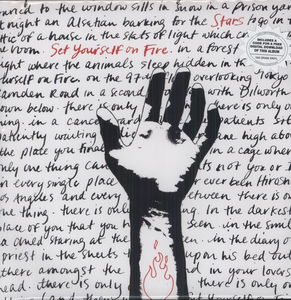 nured to the window sills in Snow in a prison yard
night an Alsatian barking for the Stars ago in t
ttic of a house in the slats of light which cr
the room. Set Yourself on Fire. in a forest
ght where the animals sleep hidden in th
urself on Fire. on the 97th overlooking Tokyo
amden Road in a second with Dilworth
own below. there is only one thing
ning. in a cancer patients sit
patiently waiting one high above
the place you final in a cage where
only one thing can its not you or I
en every single place er been throu
os Angeles and every between. there is on
ne thing. there is onl ng. In the darkest
lace of you that you h seen. in the smile
a child staring at the in the diary o
priest in the sheets upon his bed out
there amongst the nd in your lovers
head. there is only d there is only on
INCLUDES A
DIGITAL DOWNLOAD
OF THIS ALBUM